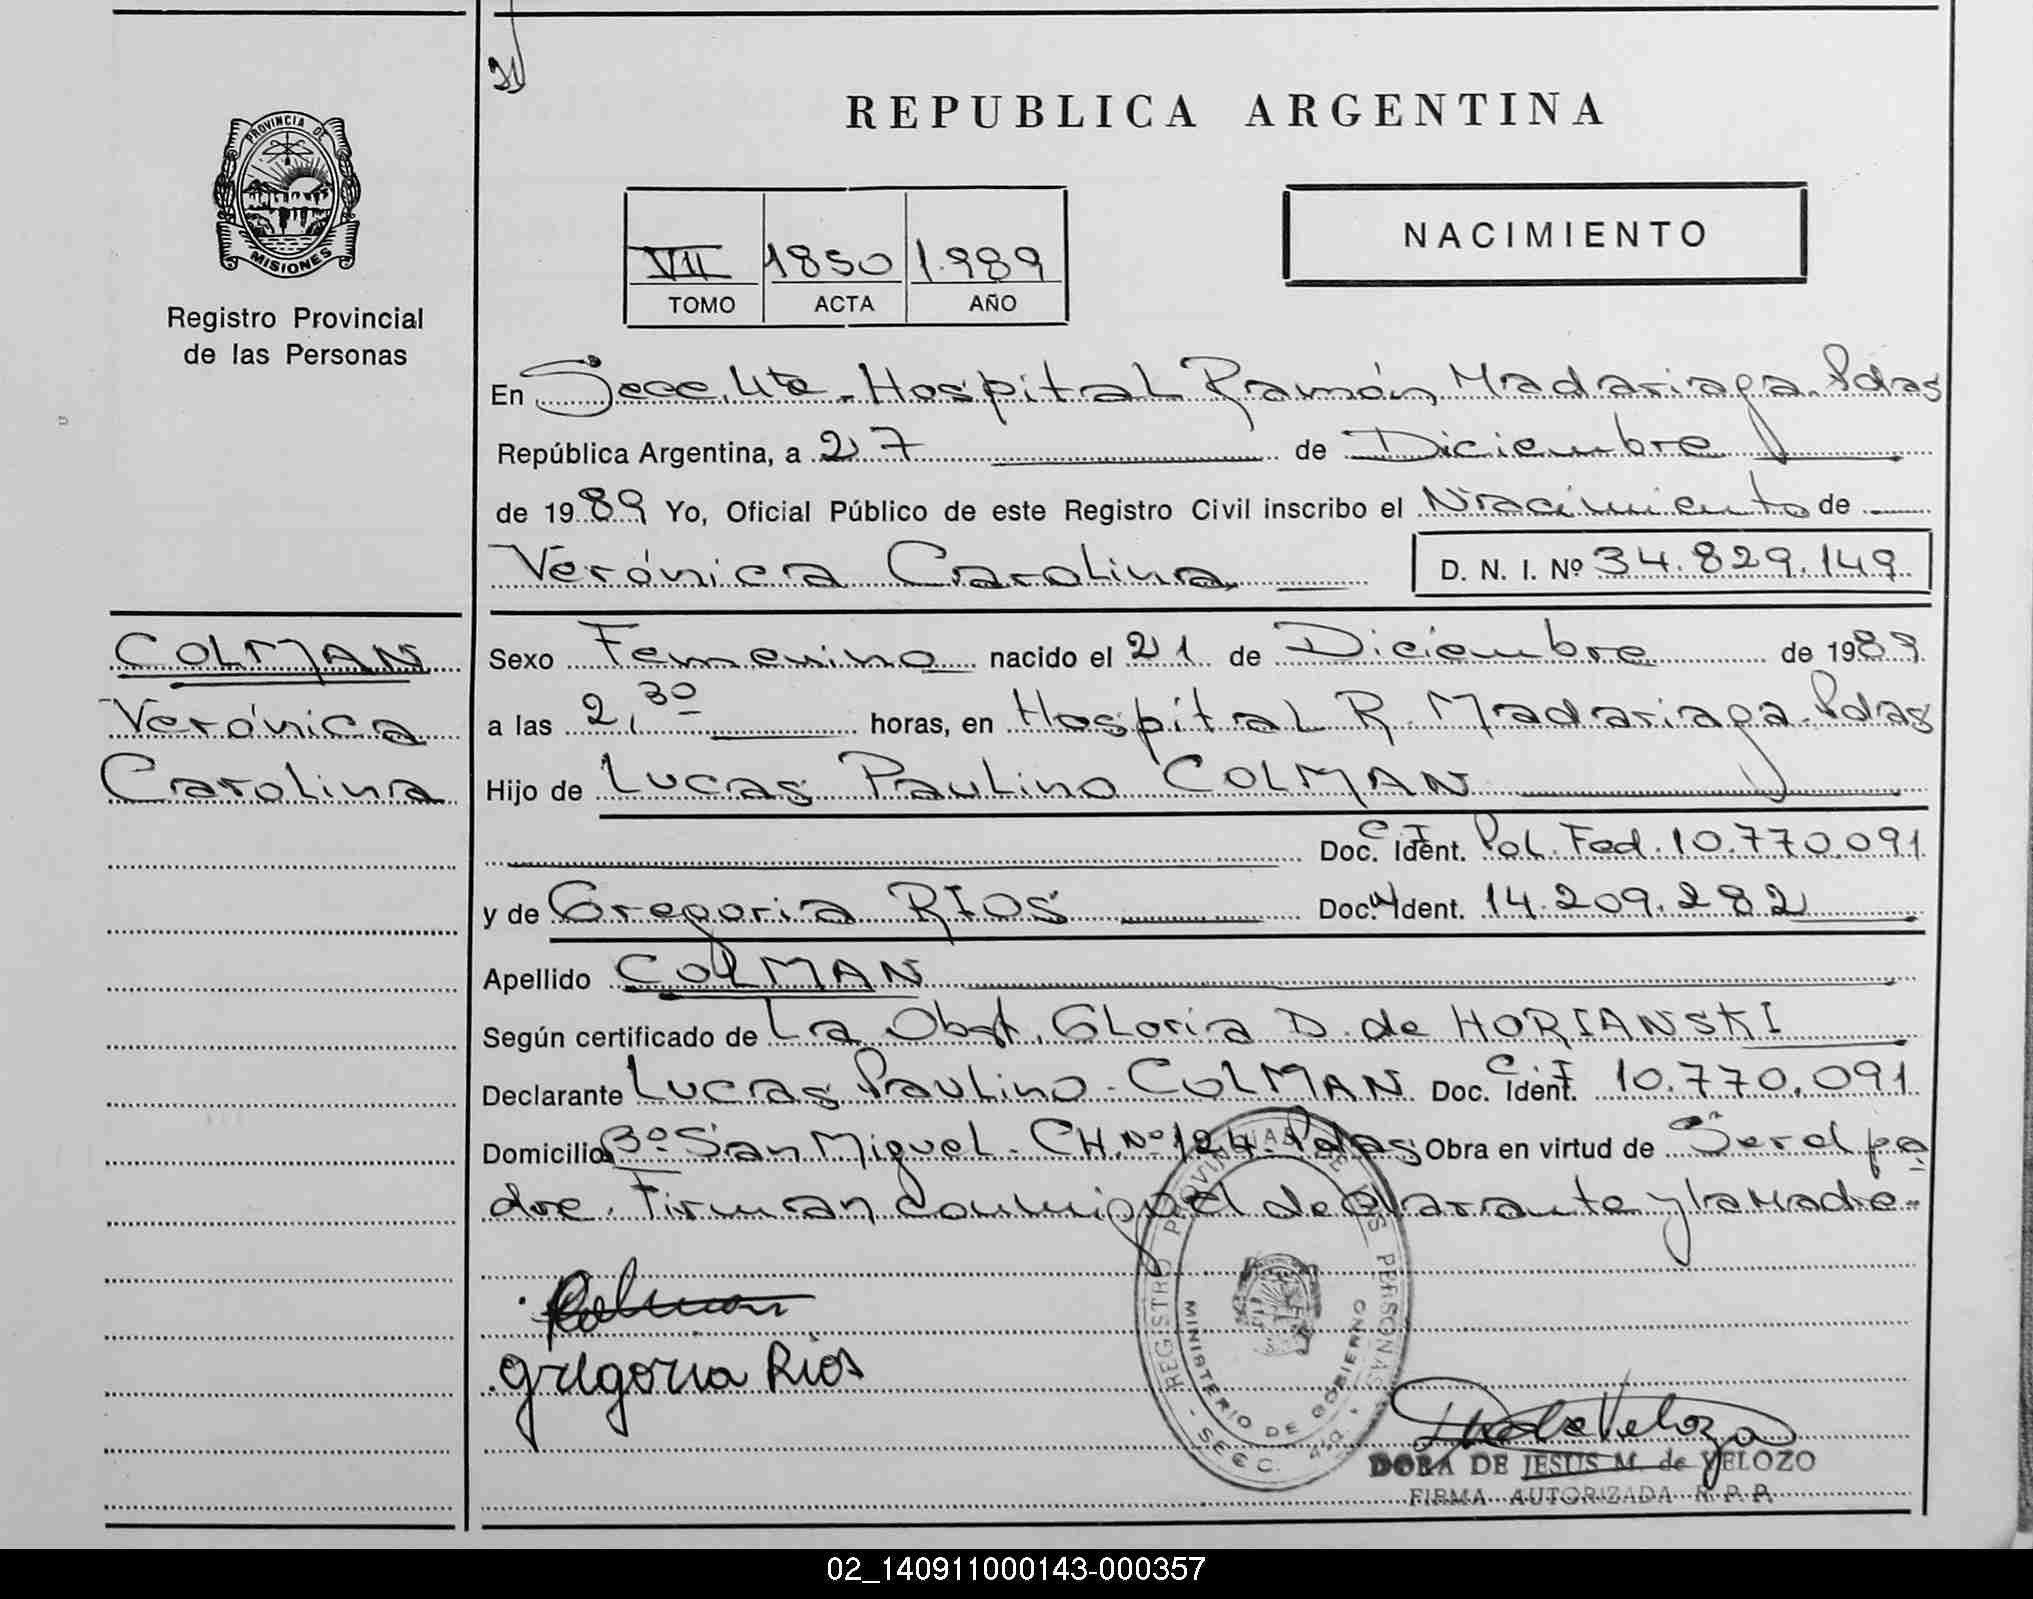 REPUBLICA ARGENTINA
PROVINCIA DE
MISIONES
Registro Provincial
de las Personas
VII 1850 1.989
TOMO ACTA AÑO
NACIMIENTO
En Secc. 4ta - Hospital Ramón Madariaga. Pdas
República Argentina, a 27 de Diciembre
de 1989 Yo, Oficial Público de este Registro Civil inscribo el Nacimiento de
Verónica Carolina D. N. I. Nº 34.829.149
COLMAN
Verónica
Carolina
Sexo Femenino nacido el 21 de Diciembre de 1989
a las 2,30 horas, en Hospital R. Madariaga. Pdas
Hijo de Lucas Paulino COLMAN
C.I. Doc. Ident. Pol. Fed. 10.770.091
y de Gregoria RIOS Doc. Ident. 14.209.282
Apellido COLMAN
Según certificado de La Obst. Gloria D. de HORIANSKI
Declarante Lucas Paulino - COLMAN C.I. Doc. Ident. 10.770.091
Domicilio Bº San Miguel - CH. Nº 124. Pdas Obra en virtud de Ser el pa
dre. Firman conmigo el declarante y la Madre -
Colman
Gregoria Rios
REGISTRO PROVINCIAL DE LAS PERSONAS
MINISTERIO DE GOBIERNO
- SECC. 4ta. -
D. de Velozo
DORA DE JESUS M. de VELOZO
FIRMA AUTORIZADA R. P. P.
02_140911000143-000357